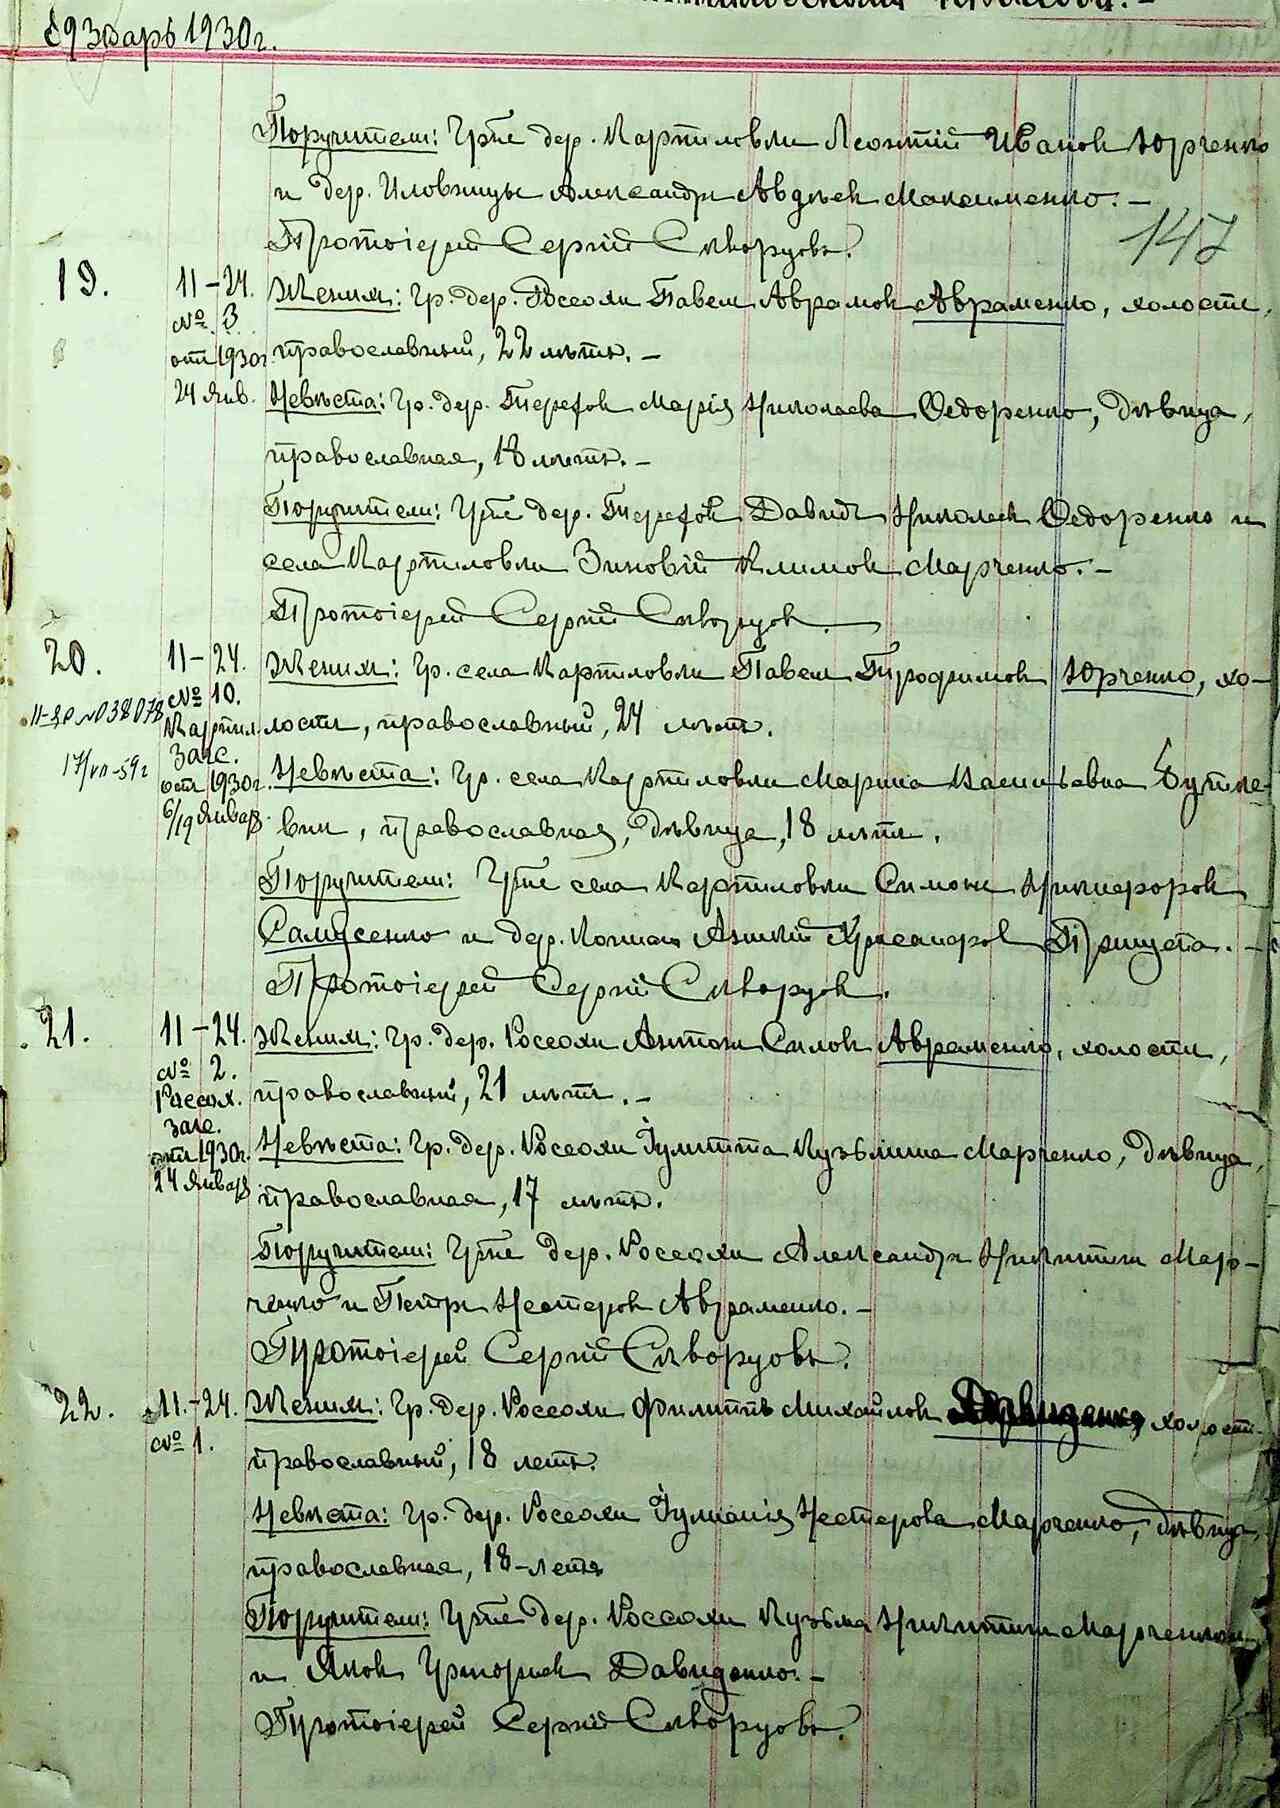 Январь 1930 г.
Поручители: Гр-не дер. Картиловки Леонтій Иванов Юрченко
и дер. Иловницы Александръ Авдѣев Максименко. –
Протоіерей Сергій Скворцовъ.
147
19.
11–24.
№ 3
от 1930 г.
24 Янв.
Женихъ: Гр. дер. Россохи Павел Аврамов Авраменко, холостъ,
православный, 22 лѣтъ. –
Невѣста: Гр. дер. Терехов Марія Николаева Федоренко, дѣвица,
православная, 18 лѣтъ. –
Поручители: Гр-не дер. Терехов Давидъ Николаев Федоренко и
села Картиловки Зиновій Климов Марченко. –
Протоіерей Сергій Скворцов.
20.
11–24.
№ 10.
Картил.
Загс.
от 1930 г.
6/19 Январ.
17/VII–59 г
Женихъ: Гр. села Картиловки Павел Трофимов Юрченко, хо-
лостъ, православный, 24 лѣтъ.
Невѣста: Гр. села Картиловки Марина Васильевна
православная, дѣвица, 18 лѣтъ.
Поручители: Гр-не села Картиловки Симонъ Никифоров
Самусенко и дер.
Протоіерей Сергій Скворцов.
21.
11–24.
№ 2.
Россох.
загс.
от 1930 г.
24 Январ
Женихъ: Гр. дер. Россохи Антонъ Силов Авраменко, холостъ,
православный, 21 лѣтъ. –
Невѣста: Гр. дер. Россохи Іулитта Кузьмина Марченко, дѣвица,
православная, 17 лѣтъ.
Поручители: Гр-не дер. Россохи Александръ Никитин Мар-
ченко и Петръ Нестеров Авраменко. –
Протоіерей Сергій Скворцовъ.
22.
11–24.
№ 1.
Женихъ: Гр. дер. Россохи Филиппъ Михайлов Давиденко, холостъ
православный, 18 летъ.
Невѣста: Гр. дер. Россохи Іуліанія Нестерова Марченко, дѣвица,
православная, 18–летъ
Поручители: Гр-не дер. Россохи Кузьма Никитин Марченко
и Яков Григорьев Давиденко. –
Протоіерей Сергій Скворцовъ.